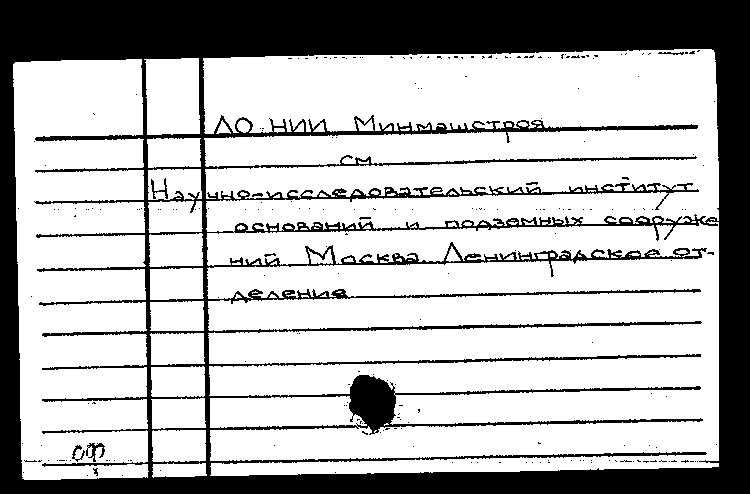 ЛО НИИ Минмашстроя
см.
Научно-исследовательский институт
оснований и подземных сооруже
ний. Москва. Ленинградское от-
деление
оф